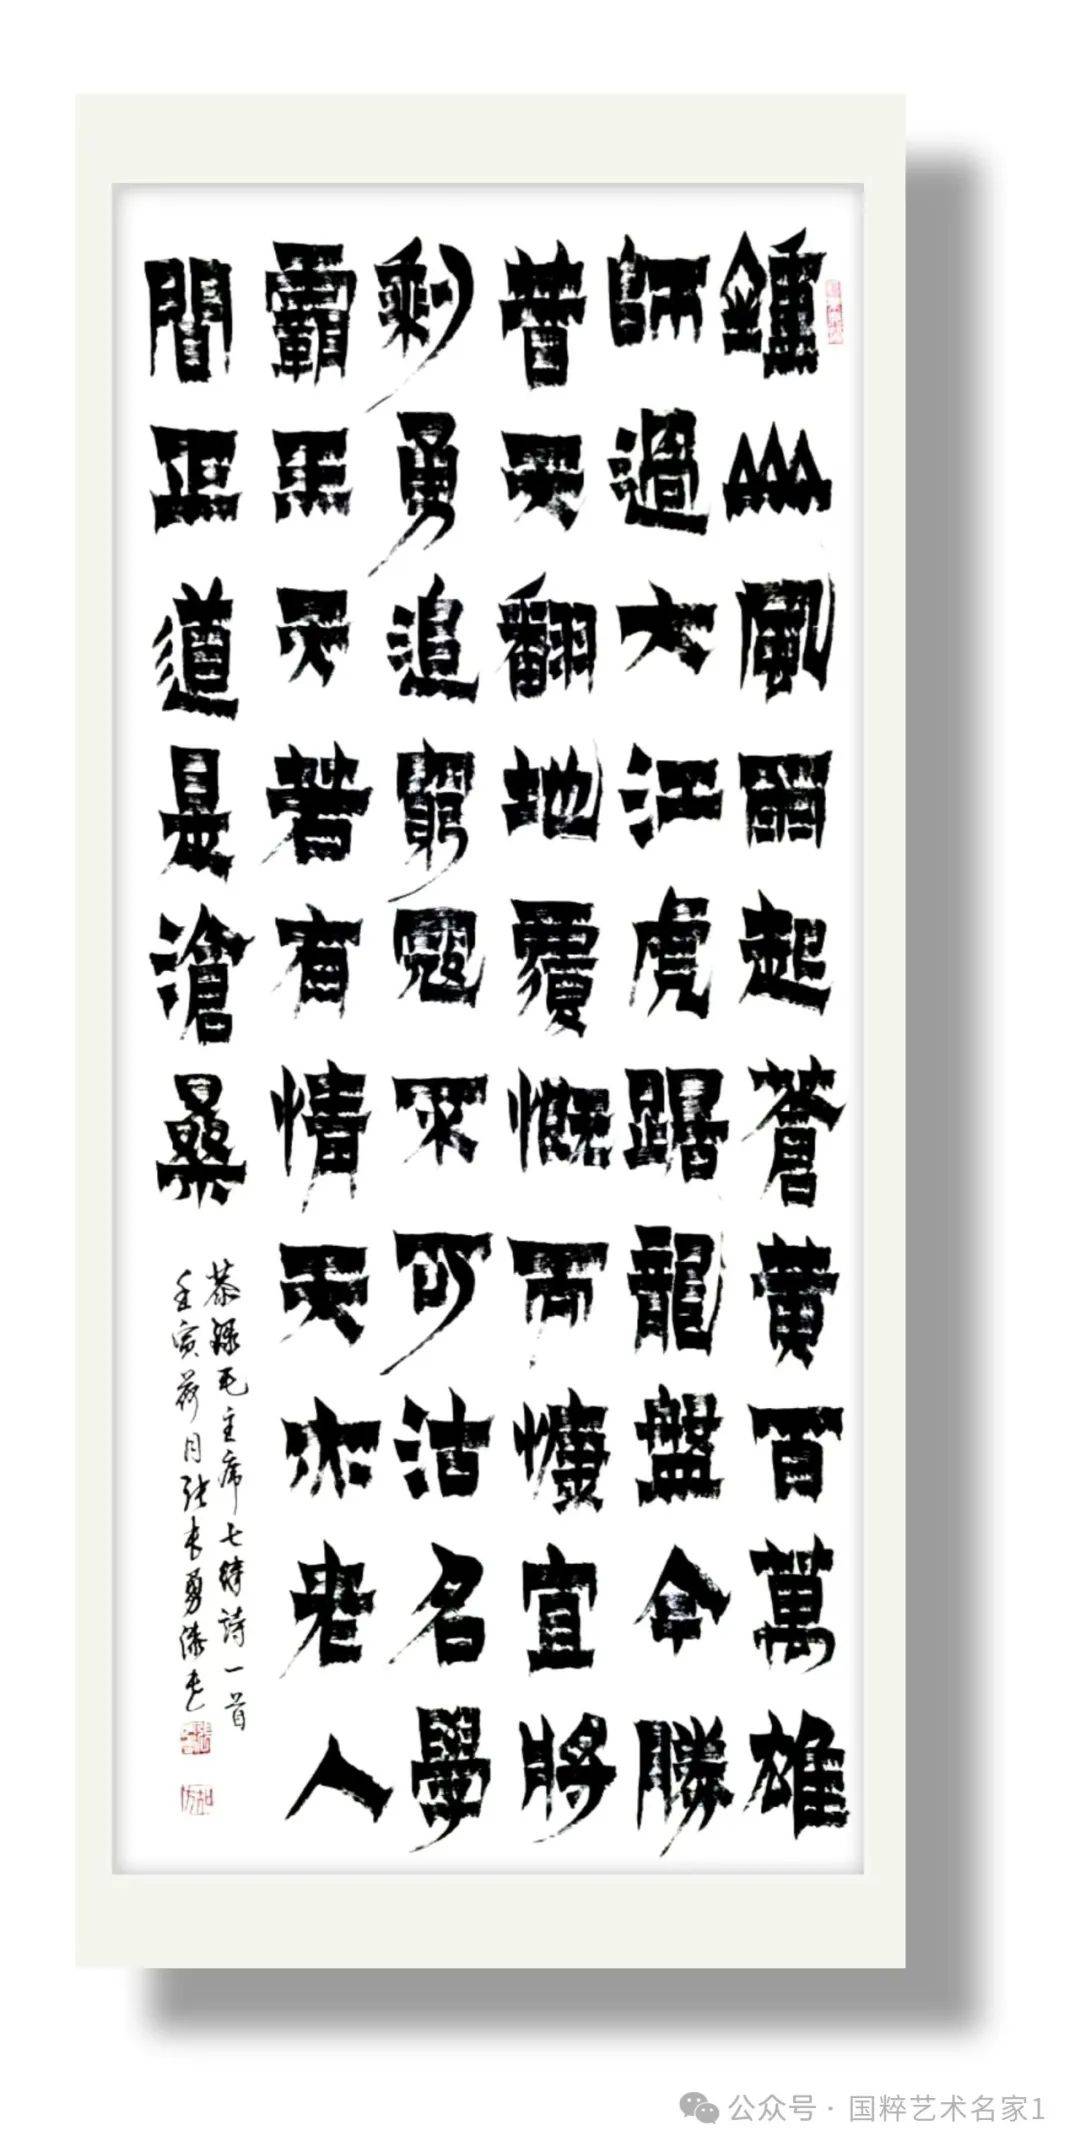 鍾山風雨起蒼黃百萬雄
師過大江虎踞龍盤今勝
昔天翻地覆慨而慷宜將
剩勇追窮寇不可沽名學
霸王天若有情天亦老人
間正道是滄桑
恭録毛主席七律詩一首
壬寅荷月张长勇漆书
公众号 · 国粹艺术名家1